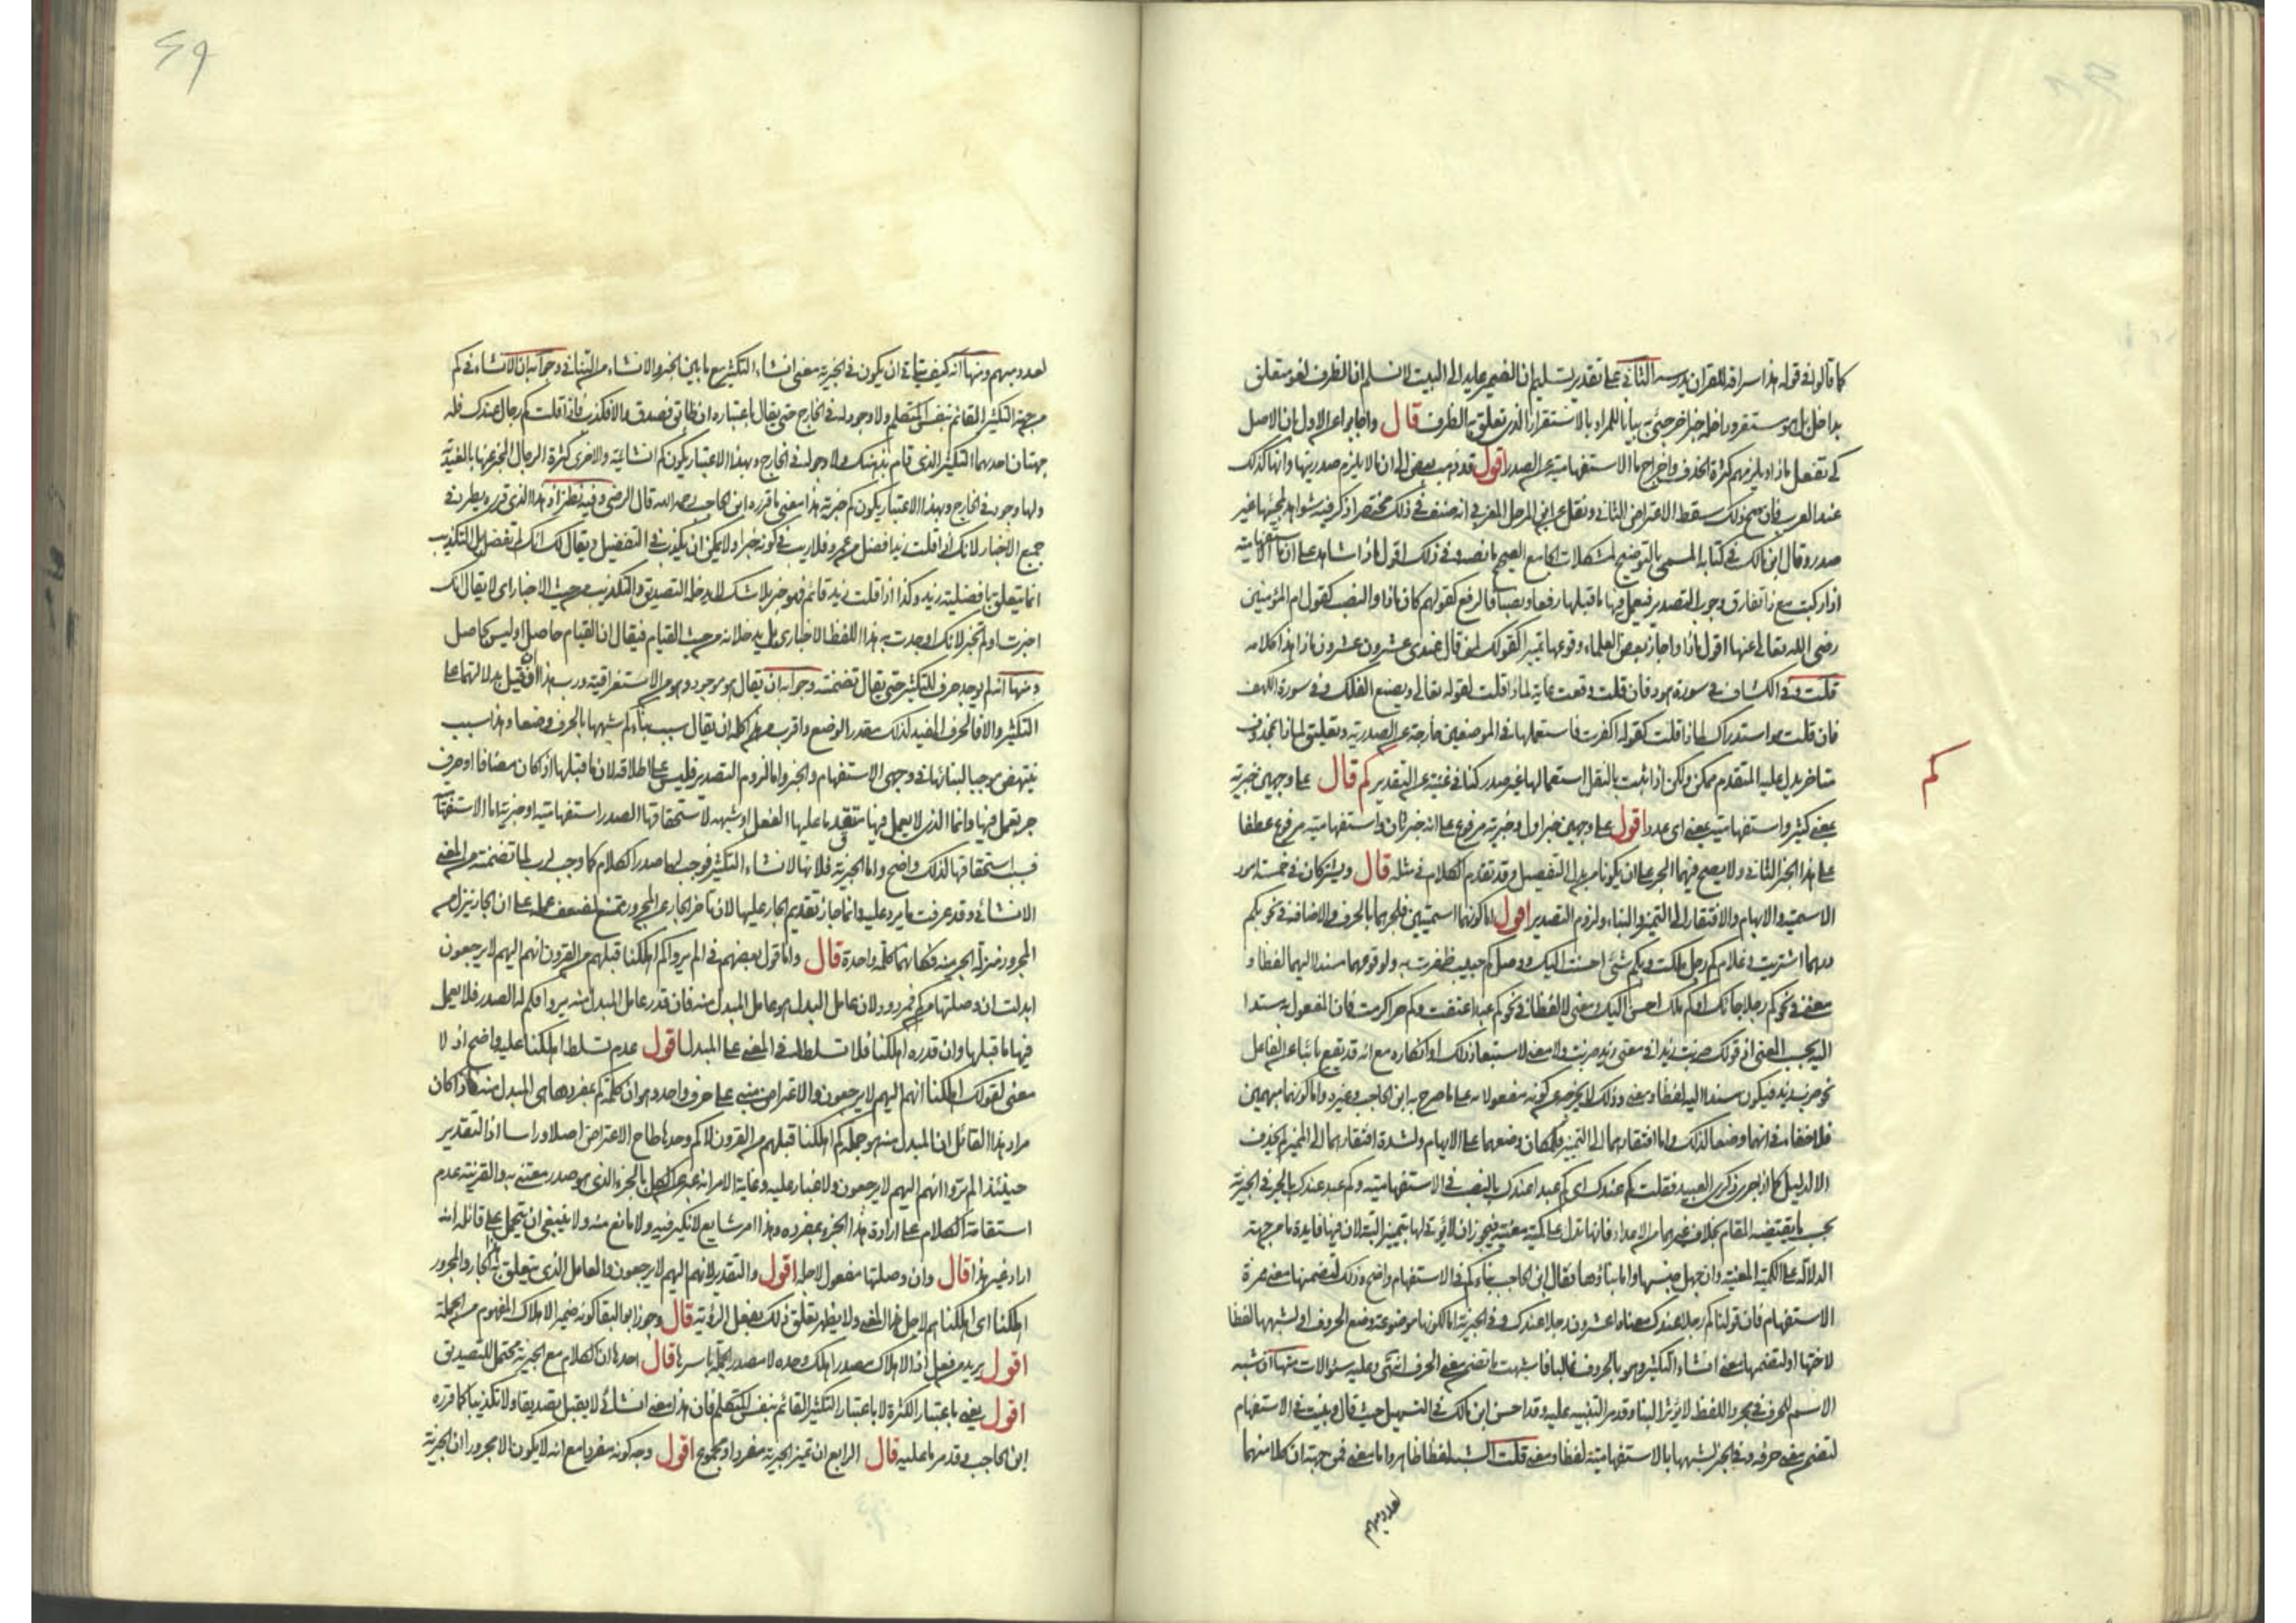 كما قالوا في قوله هذا سراقة للقرآن يدرسه الثاني على تقدير تسليم ان الضمير عايد الى البيت لا نسلم ان الظرف لغو متعلق
بداخل بل هو مستقر وداخل خبر آخر جئ به بيانا للمراد بالاستقرار الذي تعلق به الظرف قال واجابوا عن الاول بان الاصل
كي تفعل ماذا ويلزمهم كثرة الحذف واخراج ما الاستفهامية عن الصدر اقول قد ذهب بعض الى ان لا يلزم صدريتها وانها كذلك
عند العرب فان صح ذلك سقط الاعتراض الثاني ونقل عن ابن المرحل المغربي انه صنف في ذلك مختصرا ذكر فيه شواهد لمجيئها غير
صدر وقال ابن مالك في كتابه المسمى بالتوضيح لمشكلات الجامع الصحيح ما نصه وفي ذلك اقول ماذا شاهد على ان ما الاستفهامية
اذا ركبت مع ذا تفارق وجوب التصدير فيعمل فيها ما قبلها رفعا ونصبا فالرفع كقولهم كان ماذا والنصب كقول ام المؤمنين
رضي الله تعالى عنها اقول ماذا واجاز بعض العلماء وقوعها تميزا كقولك لمن قال عندي عشرون عشرون ماذا هذا كلامه
قلت وفي الكشاف في سورة هود فان قلت وقعت غاية لماذا قلت لقوله تعالى ويصنع الفلك وفي سورة الكهف
فان قلت هو استدراك لماذا قلت كقوله اكفرت فاستعملها في الموضعين خارجة عن الصدرية وتعليق لماذا بمحذوف
متاخر يدل عليه المتقدم ممكن ولكن اذا ثبت بالنقل استعمالها غير صدر كنا في غنية عن التقدير كم قال على وجهين خبرية
كم
بمعنى كثير واستفهامية بمعنى اي عدد اقول على وجهين خبر اول وخبرية مرفوع على انه خبر ثان واستفهامية مرفوع عطفا
على هذا الخبر الثاني ولا يصح فيهما الجر على ان يكونا بدل التفصيل وقد تقدم الكلام في مثله قال ويشتركان في خمسة امور
الاسمية والابهام والافتقار الى التميز والبناء ولزوم التصدير اقول اما كونهما اسميتين فلجرهما بالحرف والاضافة في نحو بكم
درهما اشتريت وغلام كم رجل ملكت وبكم شئ احسنت اليك ووصل كم حبيب ظفرت به ولوقوعهما مسندا اليهما لفظا و
معنى في نحو كم رجلا جاءك او كم ملك احسن اليك ومعنى لا لفظا في نحو كم عبدا اعتقت وكم حر اكرمت فان المفعول به مسندا
اليه بحسب المعنى اذ قولك ضربت زيدا في معنى زيد ضربت ولا معنى لاستبعاد ذلك او انكاره مع انه قد يقع نائبا عن الفاعل
نحو ضرب زيد فيكون مسندا اليه لفظا ومعنى وذلك لا يخرجه عن كونه مفعولا به على ما صرح به ابن الحاجب وغيره واما كونهما مبهمين
فلا خفاء في انهما وضعا لذلك واما افتقارهما الى التميز فلمكان وضعهما على الابهام ولشدة افتقارهما الى المميز لم يحذف
الا لدليل كما اذا جرى ذكر العبيد فقلت كم عندك اي كم عبدا عندك بالنصب في الاستفهامية وكم عبد عندك بالجر في الخبرية
بحسب ما يقتضيه المقام بخلاف غيرهما من الاعداد فانها تدل على كمية معينة فيجوز ان لا يؤتى لها بتمييز البتة لان فيها فايدة ما من جهة
الدلالة على الكمية المعينة وان جهل جنسها واما بناؤهما فقال ابن الحاجب بناء كم في الاستفهام واضح وذلك لتضمنها معنى همزة
الاستفهام فان قولنا كم رجلا عندك معناه اعشرون رجلا عندك وفي الخبرية اما لكونها موضوعة وضع الحروف او لشبهها لفظا
لاختها او لتضمنها معنى انشاء التكثير وهو بالحروف غالبا فاشبهت ما تضمن معنى الحرف انتهى وعليه سؤالات منها ان شبه
الاسم للحرف في مجرد اللفظ لا يؤثر البناء وقد مر التنبيه عليه وقد احسن ابن مالك في التسهيل حيث قال وبنيت في الاستفهام
لتضمن معنى حرفه وفي الخبر لشبهها بالاستفهامية لفظا ومعنى قلت الشبه لفظا ظاهر واما معنى فمن جهة ان كلا منهما
لعدد مبهم
لعدد مبهم ومنها انه كيف يتأتى ان يكون في الخبرية معنى انشاء التكثير مع ما بين الخبر والانشاء من التنافي وجوابه ان الانشاء في كم
من جهة التكثير القائم بنفس المتكلم ولا وجود له في الخارج حتى يقال باعتباره ان طابق فصدق والا فكذب فاذا قلت كم رجال عندك فله
جهتان احدهما التكثير الذي قام بذهنك ولا وجود له في الخارج وبهذا الاعتبار يكون كم انشائية والاخرى كثرة الرجال المخبر عنها بالعندية
ولها وجود في الخارج وبهذا الاعتبار يكون كم خبرية هذا معنى ما قرره ابن الحاجب رحمه الله قال الرضي وفيه نظر اذ هذا الذي قرره يطرد في
جميع الاخبار لانك اذا قلت زيد افضل من عمرو فلا ريب في كونه خبرا ولا يمكن ان يكذب في التفضيل ويقال لك انك لم تفضل بل التكذيب
انما يتعلق بافضلية زيد وكذا اذا قلت زيد قائم فهو خبر بلا شك لا يدخله التصديق والتكذيب من حيث الاخبار اي لا يقال انك
اخبرت او لم تخبر لانك اوجدت به هذا اللفظ الاخباري بل يدخلانه من حيث القيام فيقال ان القيام حاصل او ليس بحاصل
ومنها انه لم يوجد حرف للتكثير حتى يقال تضمنته وجوابه ان يقال هو موجود وهو من الاستغراقية ورب هذا ان قيل بدلالتهما على
التكثير والا فالحرف المفيد لذلك مقدر الوضع واقرب من هذا كله ان يقال سبب بناء كم شبهها بالحرف وضعا وهذا سبب
ينتهض موجبا لبنائها في وجهي الاستفهام والخبر واما لزوم التصدير فليس على اطلاقه لان ما قبلها اذا كان مضافا او حرف
جر يعمل فيها وانما الذي لا يعمل فيها متقدما عليها الفعل او شبهه لاستحقاقها الصدر استفهامية او خبرية اما الاستفهامية
فسبب استحقاقها لذلك واضح واما الخبرية فلانها لانشاء التكثير فوجب لها صدر الكلام كما وجب لرب لما تضمنته من المعنى
الانشائي وقد عرفت ما يرد عليه وانما جاز تقديم الجار عليها لان تاخر الجار عن المجرور ممتنع لضعف عمله على ان الجار ينزل من
المجرور منزلة الجزء منه فكانهما كلمة واحدة قال واما قول بعضهم في الم يروا كم اهلكنا قبلهم من القرون انهم اليهم لا يرجعون
ابدلت ان وصلتها من كم فمردود لان عامل البدل هو عامل المبدل منه فان قدر عامل المبدل منه يروا فكم لها الصدر فلا يعمل
فيها ما قبلها وان قدره اهلكنا فلا تسلط له في المعنى على المبدل اقول عدم تسلط اهلكنا عليه واضح اذ لا
معنى لقولك اهلكنا انهم اليهم لا يرجعون والاعتراض مبني على حرف واحد وهو ان كلمة كم بمفردها هي المبدل منه فاذا كان
مراد هذا القائل ان المبدل منه هو جملة كم اهلكنا قبلهم من القرون لا كم وحدها طاح الاعتراض اصلا وراسا اذ التقدير
حينئذ الم يروا انهم اليهم لا يرجعون ولا غبار عليه وغاية الامر انه عبر عن الكل بالجزء الذي هو صدر معتنى به والقرينة عدم
استقامة الكلام على ارادة هذا الجزء بمفرده وهذا امر شايع لا نكير فيه ولا مانع منه ولا ينبغي ان يتحمل على قائله انه
اراد غير هذا قال وان وصلتها مفعول لاجله اقول والتقدير لانهم اليهم لا يرجعون والعامل الذي يتعلق به هذا الجار والمجرور
اهلكنا اي اهلكناهم لاجل هذا المعنى ولا يظهر تعلق ذلك بفعل الرؤية قال وجوز ابو البقا كونه ضمير الاهلاك المفهوم من الجملة
اقول يريد من فعل اذ الاهلاك مصدر اهلك وحده لا مصدر الجملة باسرها قال احدها ان الكلام مع الخبرية محتمل للتصديق
اقول يعني باعتبار الكثرة لا باعتبار التكثير القائم بنفس المتكلم فان هذا معنى انشائي لا يقبل تصديقا ولا تكذيبا كما قرره
ابن الحاجب وقد مر ما عليه قال الرابع ان تميز الخبرية مفرد او مجموع اقول وجه كونه مفردا مع انه لا يكون الا مجرورا ان الخبرية